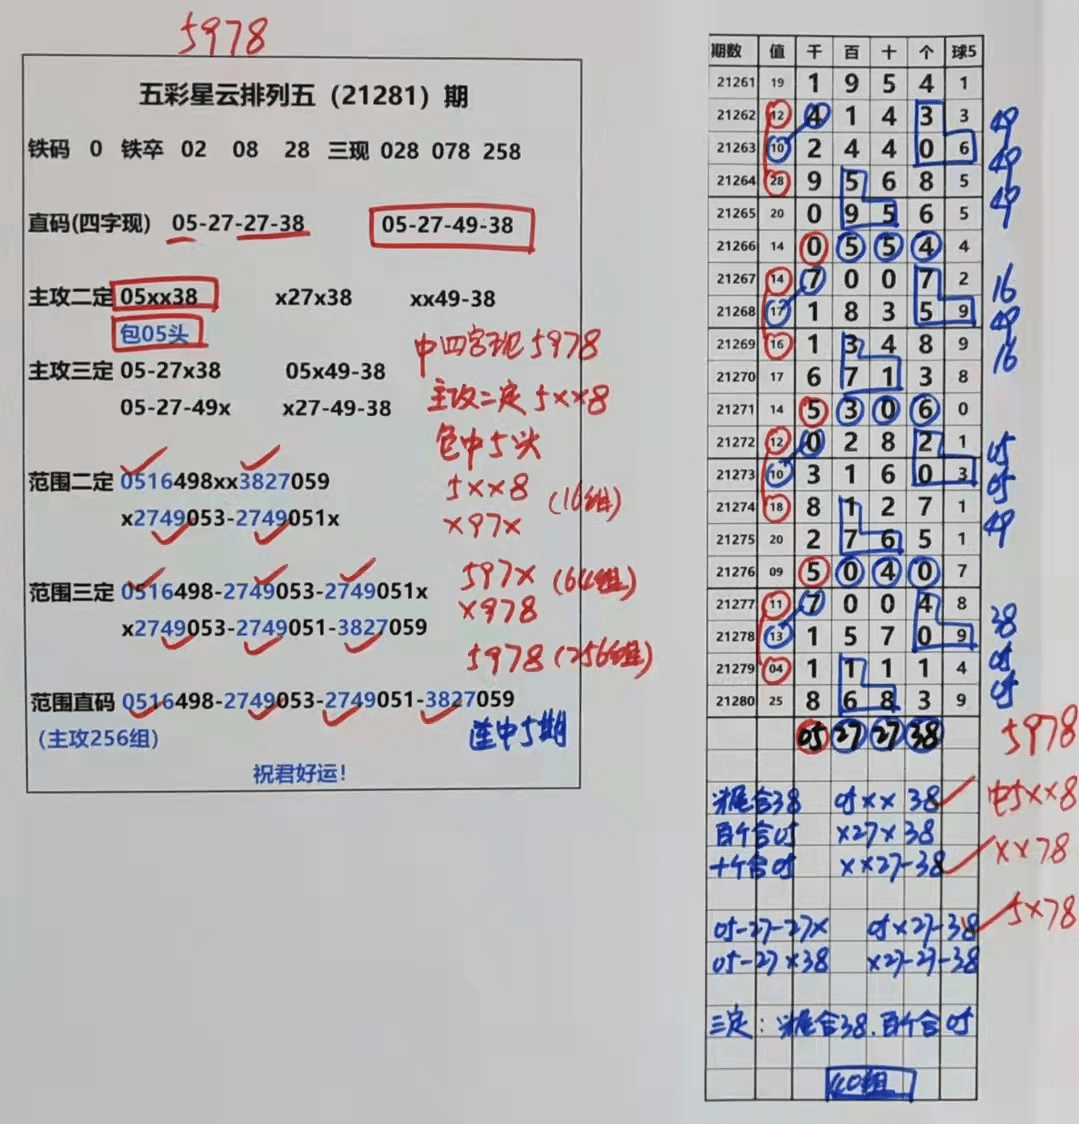 5978
五彩星云排列五（21281）期
铁码 0 铁卒 02 08 28 三现 028 078 258
直码(四字现) 05-27-27-38 05-27-49-38
主攻二定 05xx38 x27x38 xx49-38
包05头
中四字现 5978
主攻三定 05-27x38 05x49-38
主攻二定 5××8
05-27-49x x27-49-38
包中5头
范围二定 0516498xx3827059
5××8 (16组)
x2749053-2749051x
×97×
范围三定 0516498-2749053-2749051x
597× (64组)
x2749053-2749051-3827059
×978
5978 (256组)
范围直码 0516498-2749053-2749051-3827059
(主攻256组)
连中5期
祝君好运！
期数 值 千 百 十 个 球5
21261 19 1 9 5 4 1
21262 12 4 1 4 3 3 49
21263 10 2 4 4 0 6 49
21264 28 9 5 6 8 5 49
21265 20 0 9 5 6 5
21266 14 0 5 5 4 4
21267 14 7 0 0 7 2 16
21268 17 1 8 3 5 9 49
21269 16 1 3 4 8 9 16
21270 17 6 7 1 3 8
21271 14 5 3 0 6 0
21272 12 0 2 8 2 1 05
21273 10 3 1 6 0 3 05
21274 18 8 1 2 7 1 49
21275 20 2 7 6 5 1
21276 09 5 0 4 0 7
21277 11 7 0 0 4 8 38
21278 13 1 5 7 0 9 05
21279 04 1 1 1 1 4 05
21280 25 8 6 8 3 9
05 27 27 38 5978
头尾合38 05×× 38 中5××8
百个合05 ×27×38
十个合05 ××27-38 ××78
05-27-27× 05×27-38 5×78
05-27×38 ×27-27-38
三定：头尾合38.百个合05
40组